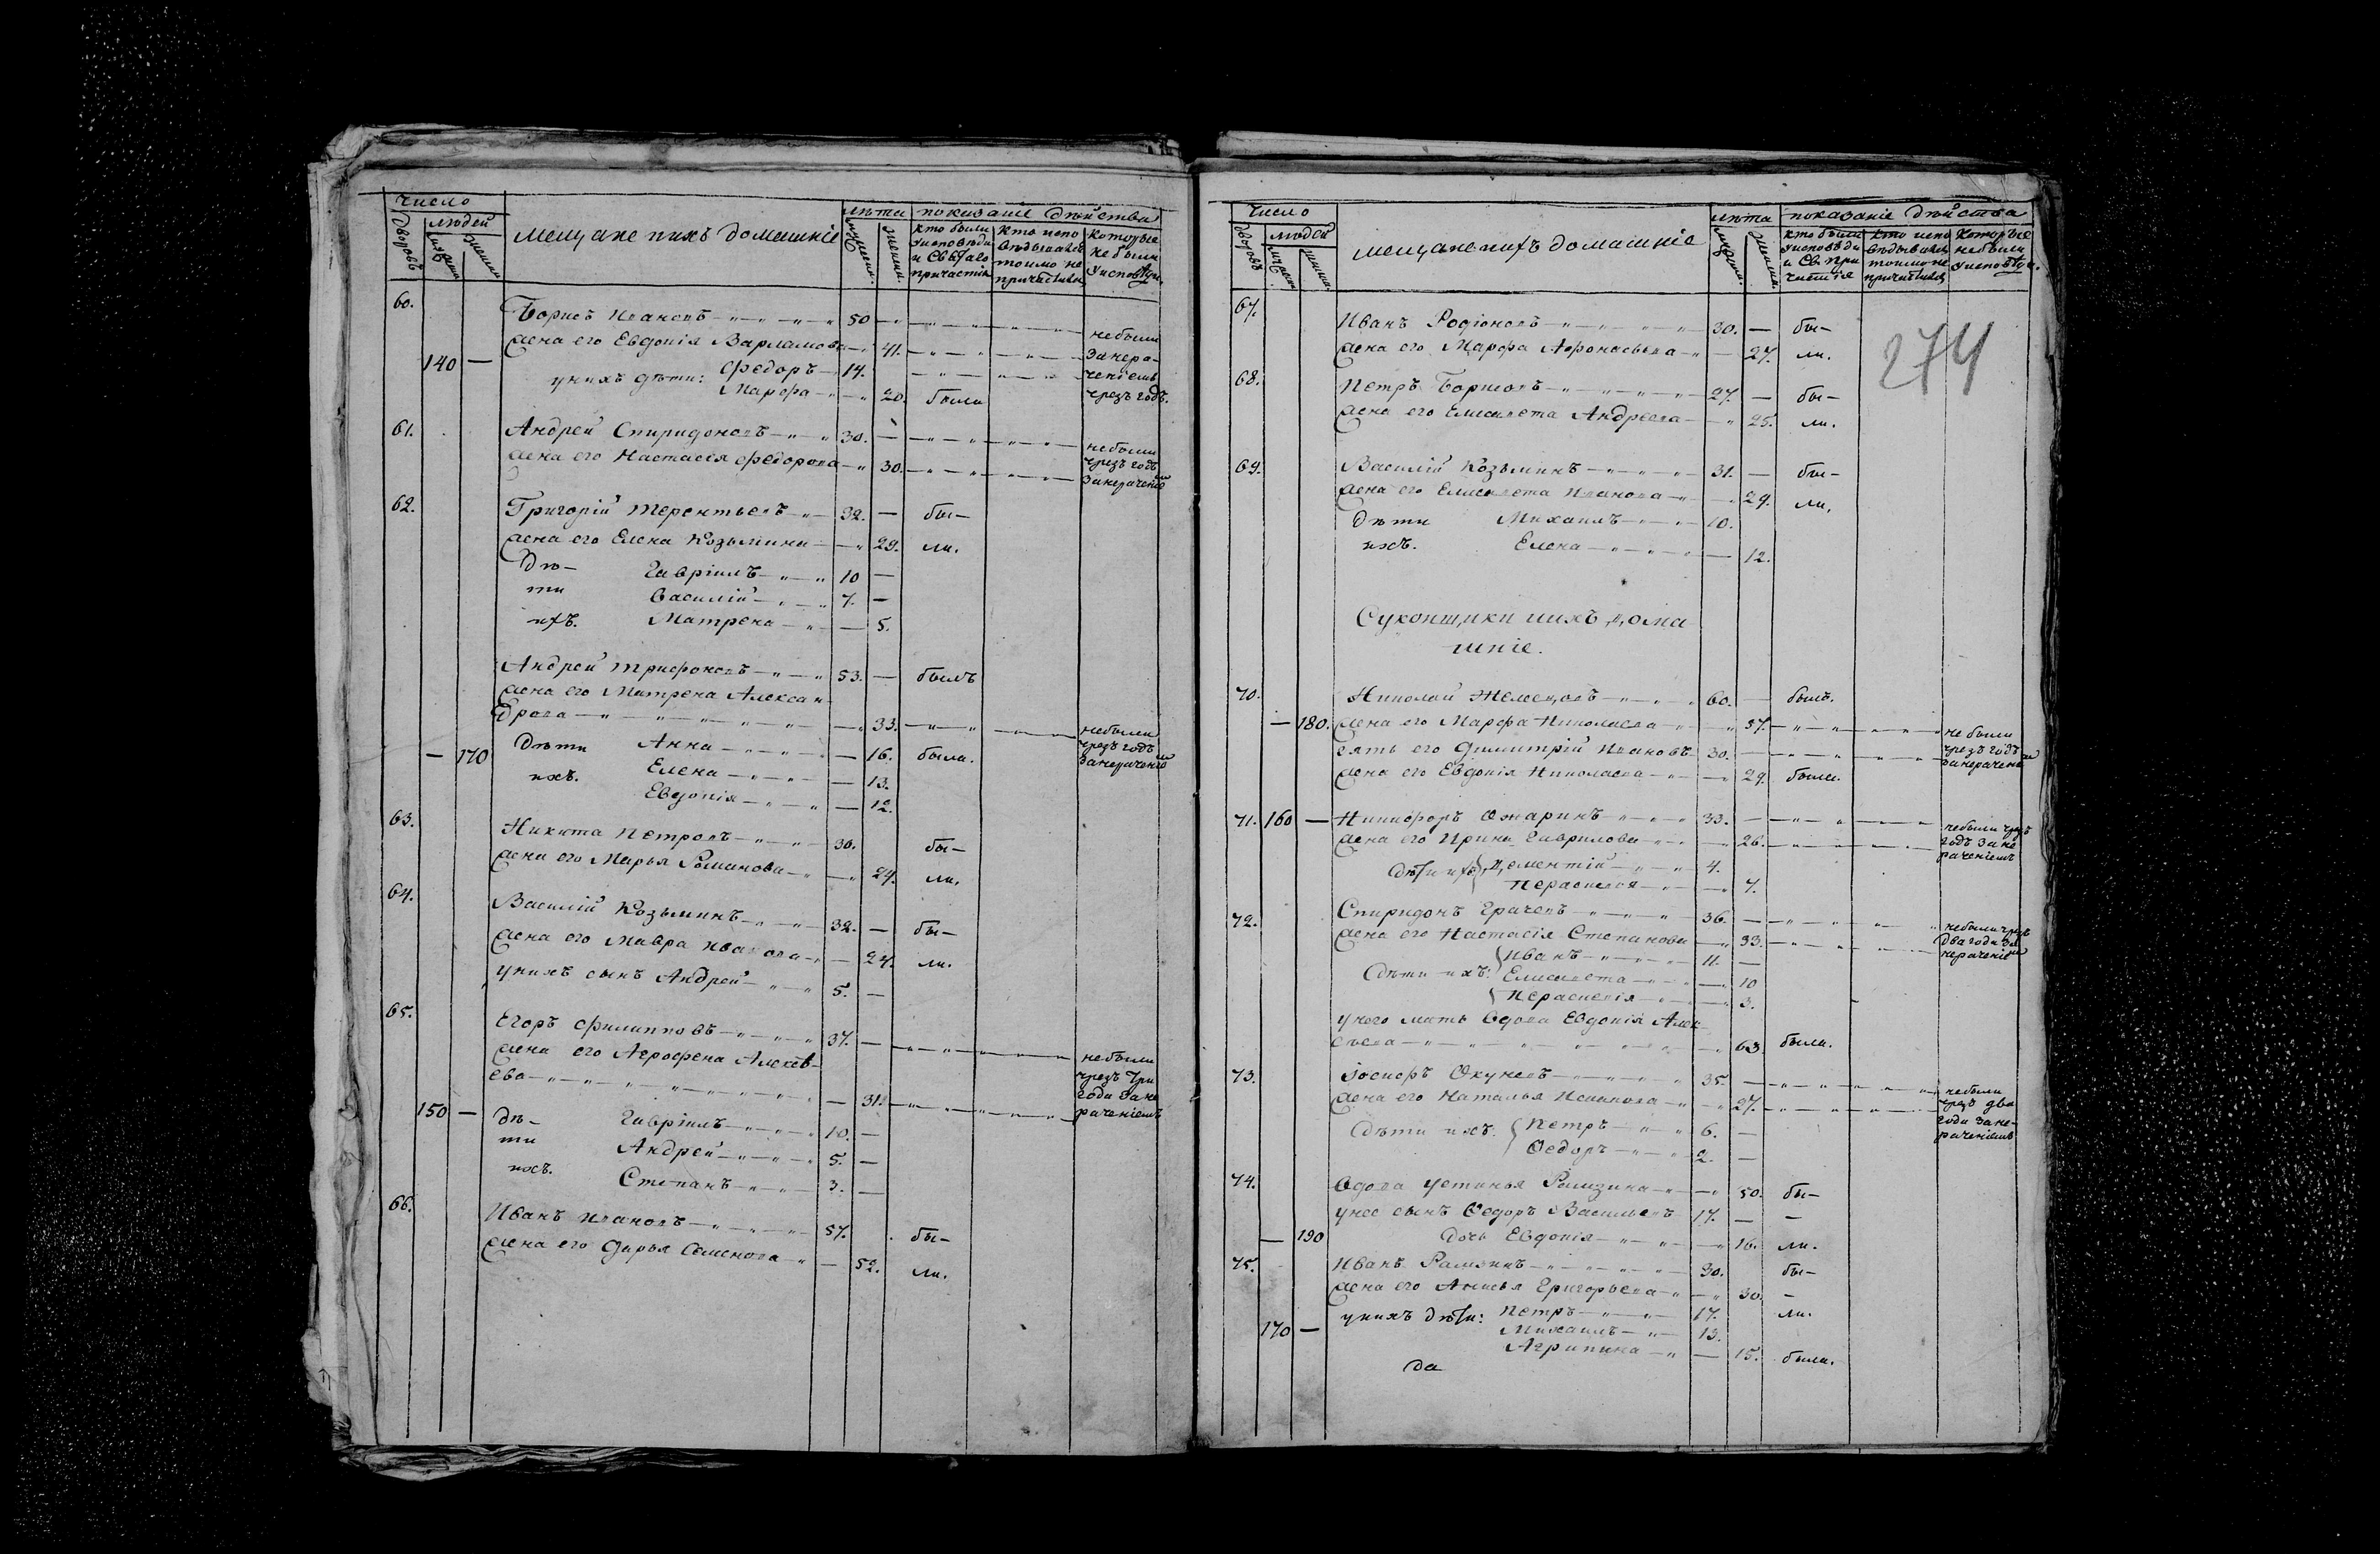 Число
людей
Дворовъ
мещане и ихъ домашніе
лѣта
показаніе дѣйства
кто были
у исповѣди
и Св.
причастія
кто испо
вѣдывался
токмо не
причастился
которые
не были
у исповѣди.
60.
Борисъ Ивановъ 50
жена его Евдокія Варламова 41.
не были
за нера-
ченіемъ
чрезъ годъ.
140 —
у нихъ дѣти: Федоръ 14.
Марфа 20. была
61.
Андрей Спиридоновъ 30.
жена его Настасія Федорова 30.
не были
чрезъ годъ
за нерачениемъ
62.
Григорій Терентьевъ 32. — бы-
жена его Елена Козьмина 29. ли.
Дѣ- Гавріилъ 10 —
ти Василій 7. —
ихъ. Матрена — 5.
Андрей Трифоновъ 53. — былъ
жена его Матрена Алексан
дрова 33.
не были
чрезъ годъ
за нерачениемъ
— 170
Дѣти Анна 16. была.
ихъ. Елена 13.
Евдокія 12.
63.
Никита Петровъ 30. бы-
жена его Марья Романова 24. ли.
64.
Василій Козьминъ 32. — бы-
жена его Мавра Иванова 24. ли.
у нихъ сынъ Андрей 5. —
65.
Егоръ Филипповъ 37. —
жена его Агрофена Алексѣ-
ева 31.
не были
чрезъ три
года за не
раченіемъ
150 —
дѣ- Гавріилъ 10. —
ти Андрей 5. —
ихъ. Степанъ 3. —
66.
Иванъ Ивановъ 57. бы-
жена его Дарья Семенова 52. ли.
Число
людей
Дворовъ
мещане и ихъ домашніе
лѣта
показаніе дѣйства
кто были
у исповѣди
и Св. при
частія
кто испо
вѣдывался
токмо не
причастился
которые
не были
у исповѣди.
274
67.
Иванъ Родіоновъ 30. — бы-
жена его Марфа Афонасьева 27. ли.
68.
Петръ Борисовъ 27. — бы-
жена его Елисавета Андреева 25. ли.
69.
Василій Козьминъ 31. — бы-
жена его Елисавета Иванова 29. ли.
Дѣти Михаилъ 10.
ихъ. Елена 12.
Суконщики и ихъ дома
шніе.
70.
Николай Железцовъ 60. — былъ.
— 180. жена его Марфа Николаева 57.
зять его Димитрій Ивановъ 30.
жена его Евдокія Николаева 29. была.
не были
чрезъ годъ
за нерачениемъ
71. 160 — Никифоръ Ожаринъ 33. —
жена его Ирина Гаврилова 26.
не были чрезъ
годъ за не
раченіемъ
Дѣти ихъ Дементій 4.
Параскевія 7.
72.
Спиридонъ Грачевъ 36. —
жена его Настасія Степанова 33.
не были чрезъ
два года за
нерачениемъ
Дѣти ихъ: Иванъ 11. —
Елисавета 10
Параскевія 3.
у него мать вдова Евдокія Алек
сѣева 63. была.
73.
Іосифъ Окуневъ 35. —
жена его Наталья Иванова 27.
не были
чрезъ два
года за не-
раченіемъ
Дѣти ихъ. Петръ 6. —
Ѳедоръ 2. —
74.
Вдова Устинья Рамзина 50. бы-
у нее сынъ Ѳедоръ Васильевъ 17. — —
— 190 дочь Евдокія 16. ли.
75.
Иванъ Рамзинъ 30. бы-
жена его Анисья Григорьева 30. —
у нихъ дѣти: Петръ 17. ли.
170 — Михаилъ 13.
Агрипина 15. была.
да